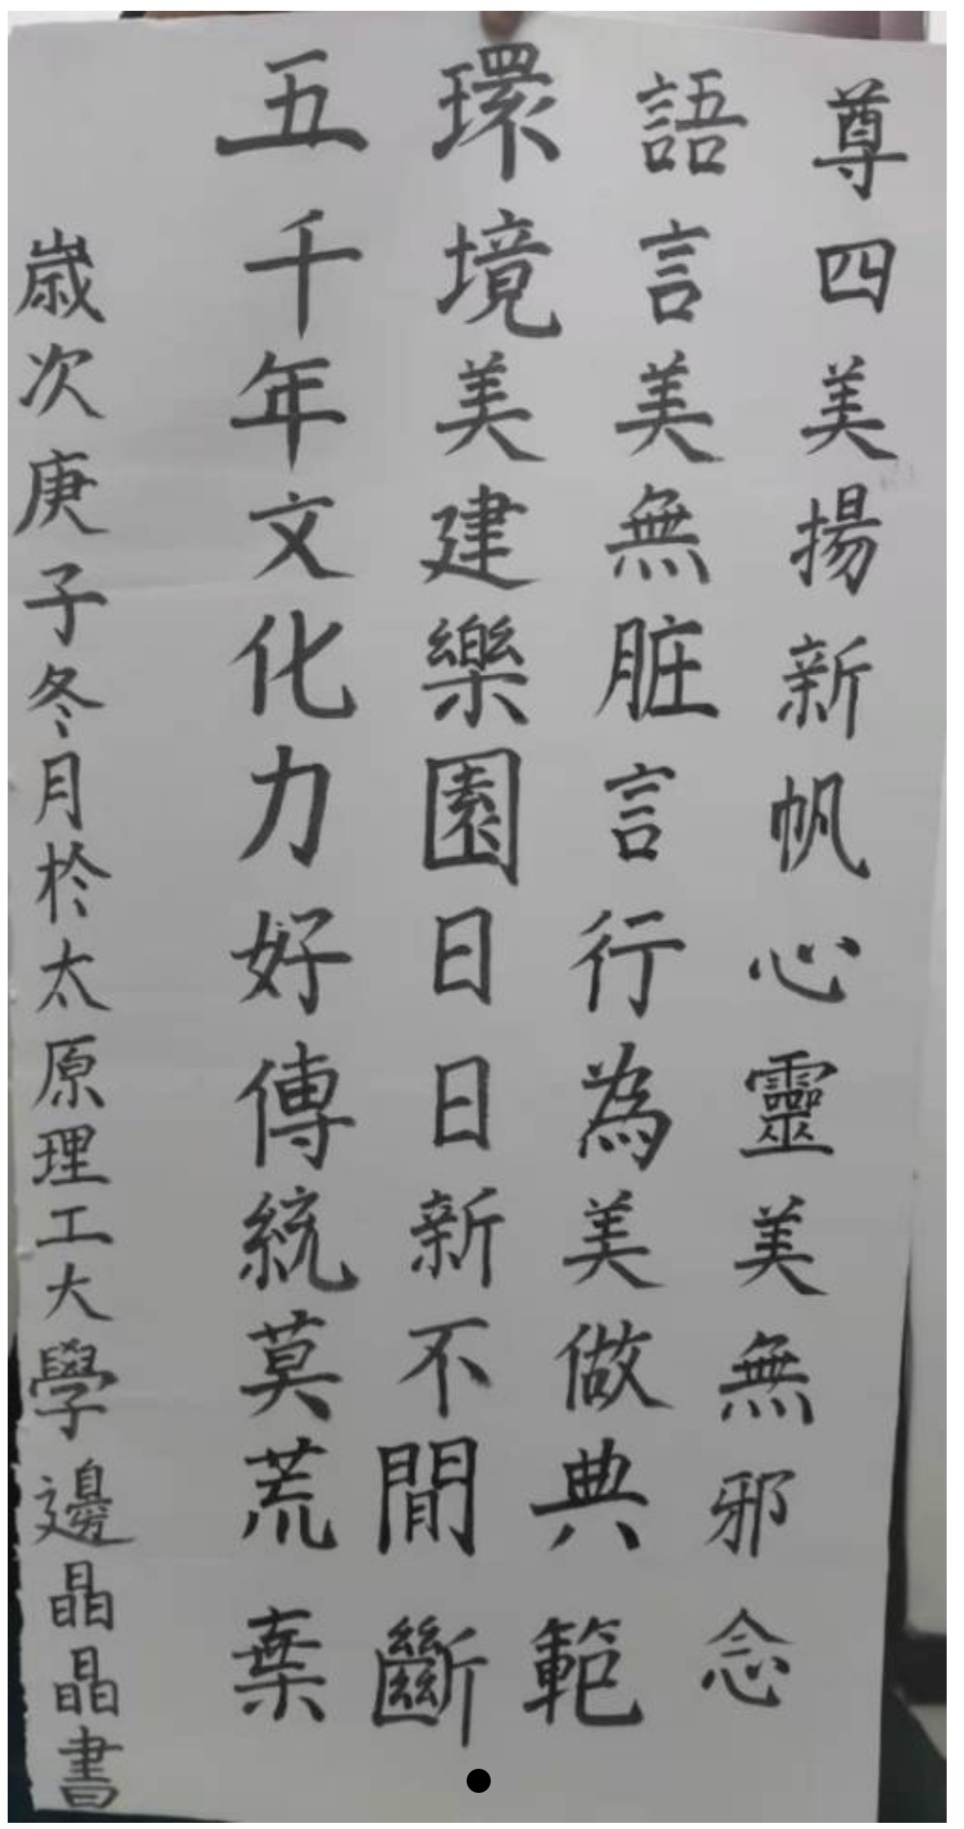 尊四美揚新帆心靈美無邪念
語言美無脏言行為美做典範
環境美建樂園日日新不間斷
五千年文化力好傳統莫荒棄
歲次庚子冬月於太原理工大學邊晶晶書